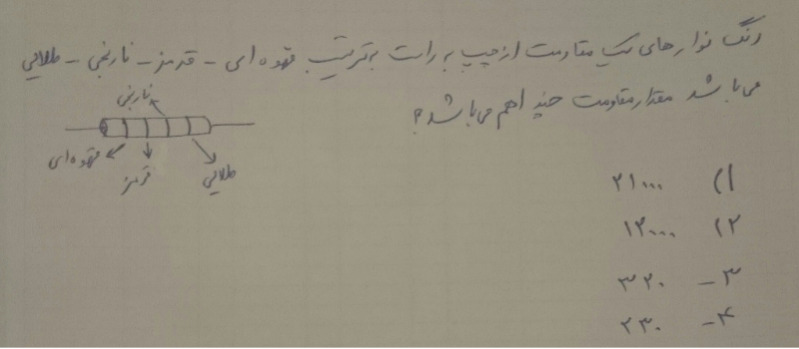 رنگ نوارهای یک مقاومت از چپ به راست به ترتیب قهوه ای - قرمز - نارنجی - طلایی
می باشد مقدار مقاومت چند اهم می باشد؟
نارنجی
قهوه ای
قرمز
طلایی
۱) ۲۱۰۰۰
۲) ۱۲۰۰۰
۳- ۳۲۰
۴- ۲۳۰